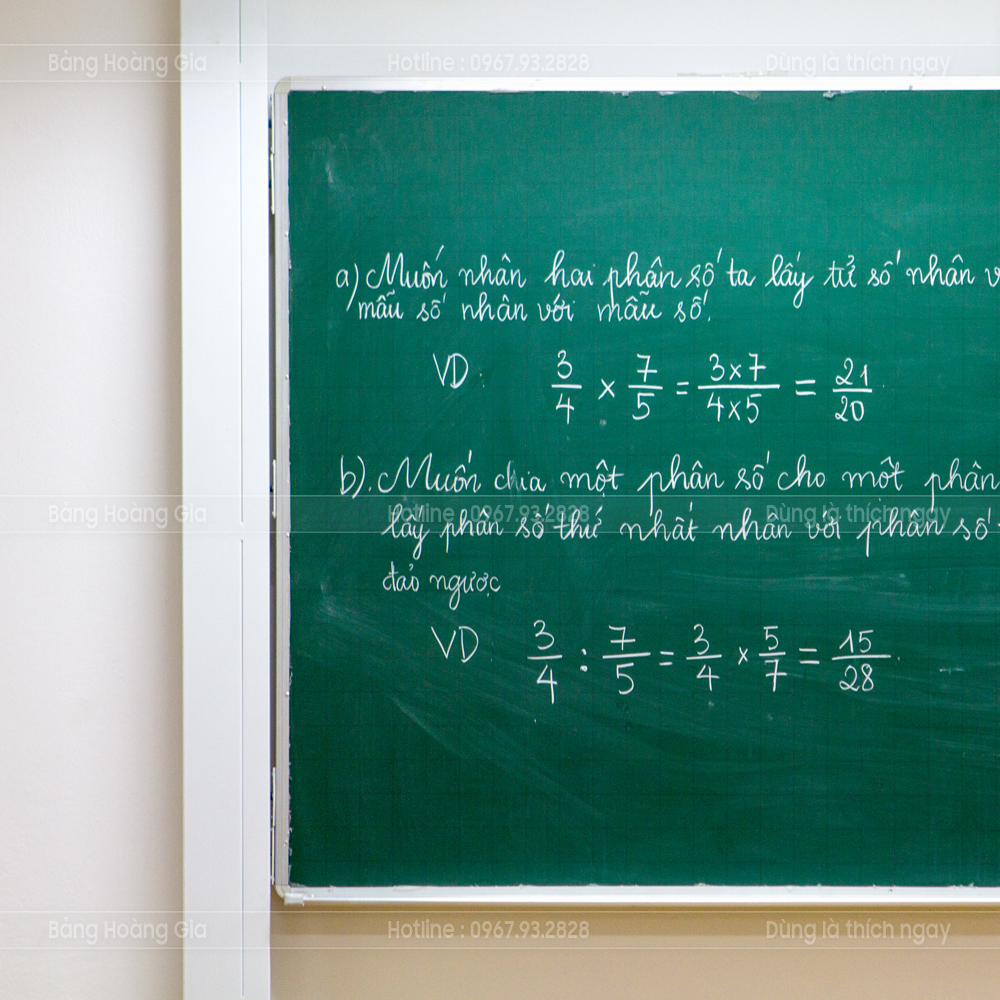 Bảng Hoàng Gia Hotline : 0967.93.2828 Dùng là thích ngay
a) Muốn nhân hai phân số ta lấy tử số nhân
mẫu số nhân với mẫu số.
VD: 3/4 × 7/5 = 3×7/4×5 = 21/20
b). Muốn chia một phân số cho một phân
Bảng Hoàng Gia Hotline : 0967.93.2828 Dùng là thích ngay
lấy phân số thứ nhất nhân với phân số
đảo ngược
VD 3/4 : 7/5 = 3/4 × 5/7 = 15/28
Bảng Hoàng Gia Hotline : 0967.93.2828 Dùng là thích ngay